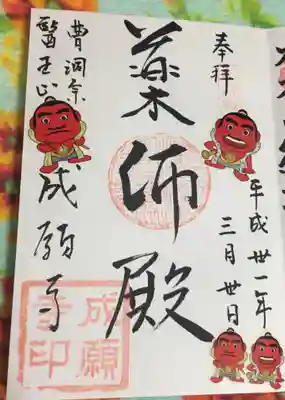 奉拝
平成卅一年
三月廿日
薬師殿
曹洞宗
醫王山
成願寺
成願
寺印